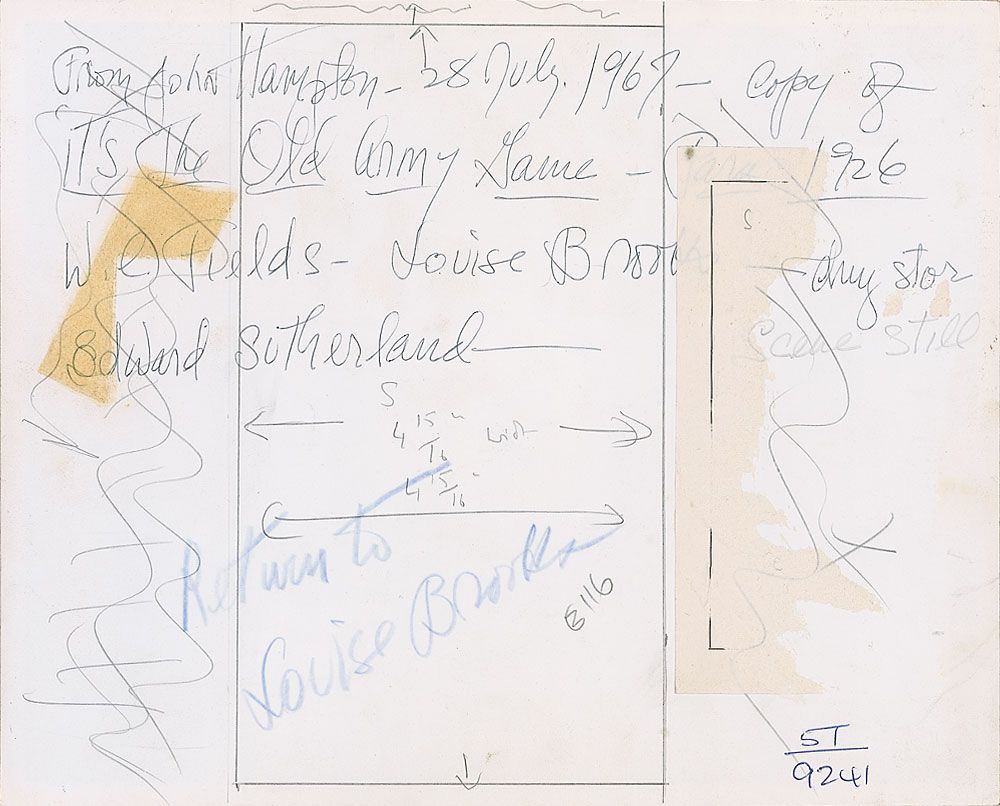 From John Hampton - 28 July. 1967 - copy of
It's The Old Army Game - Para 1926
S
W.C. Fields - Louise Brooks - drug stor
Scene still
Edward Sutherland
S
4 15/16"
4 15/16"
Return to
Louise Brooks
E116
ST
9241